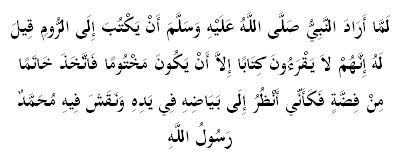 لَمَّا أَرَادَ النَّبِيُّ صَلَّى اللَّهُ عَلَيْهِ وَسَلَّمَ أَنْ يَكْتُبَ إِلَى الرُّومِ قِيلَ
لَهُ إِنَّهُمْ لاَ يَقْرَءُونَ كِتَابًا إِلاَّ أَنْ يَكُونَ مَخْتُومًا فَاتَّخَذَ خَاتَمًا
مِنْ فِضَّةٍ فَكَأَنِّي أَنْظُرُ إِلَى بَيَاضِهِ فِي يَدِهِ وَنَقَشَ فِيهِ مُحَمَّدٌ
رَسُولُ اللَّهِ